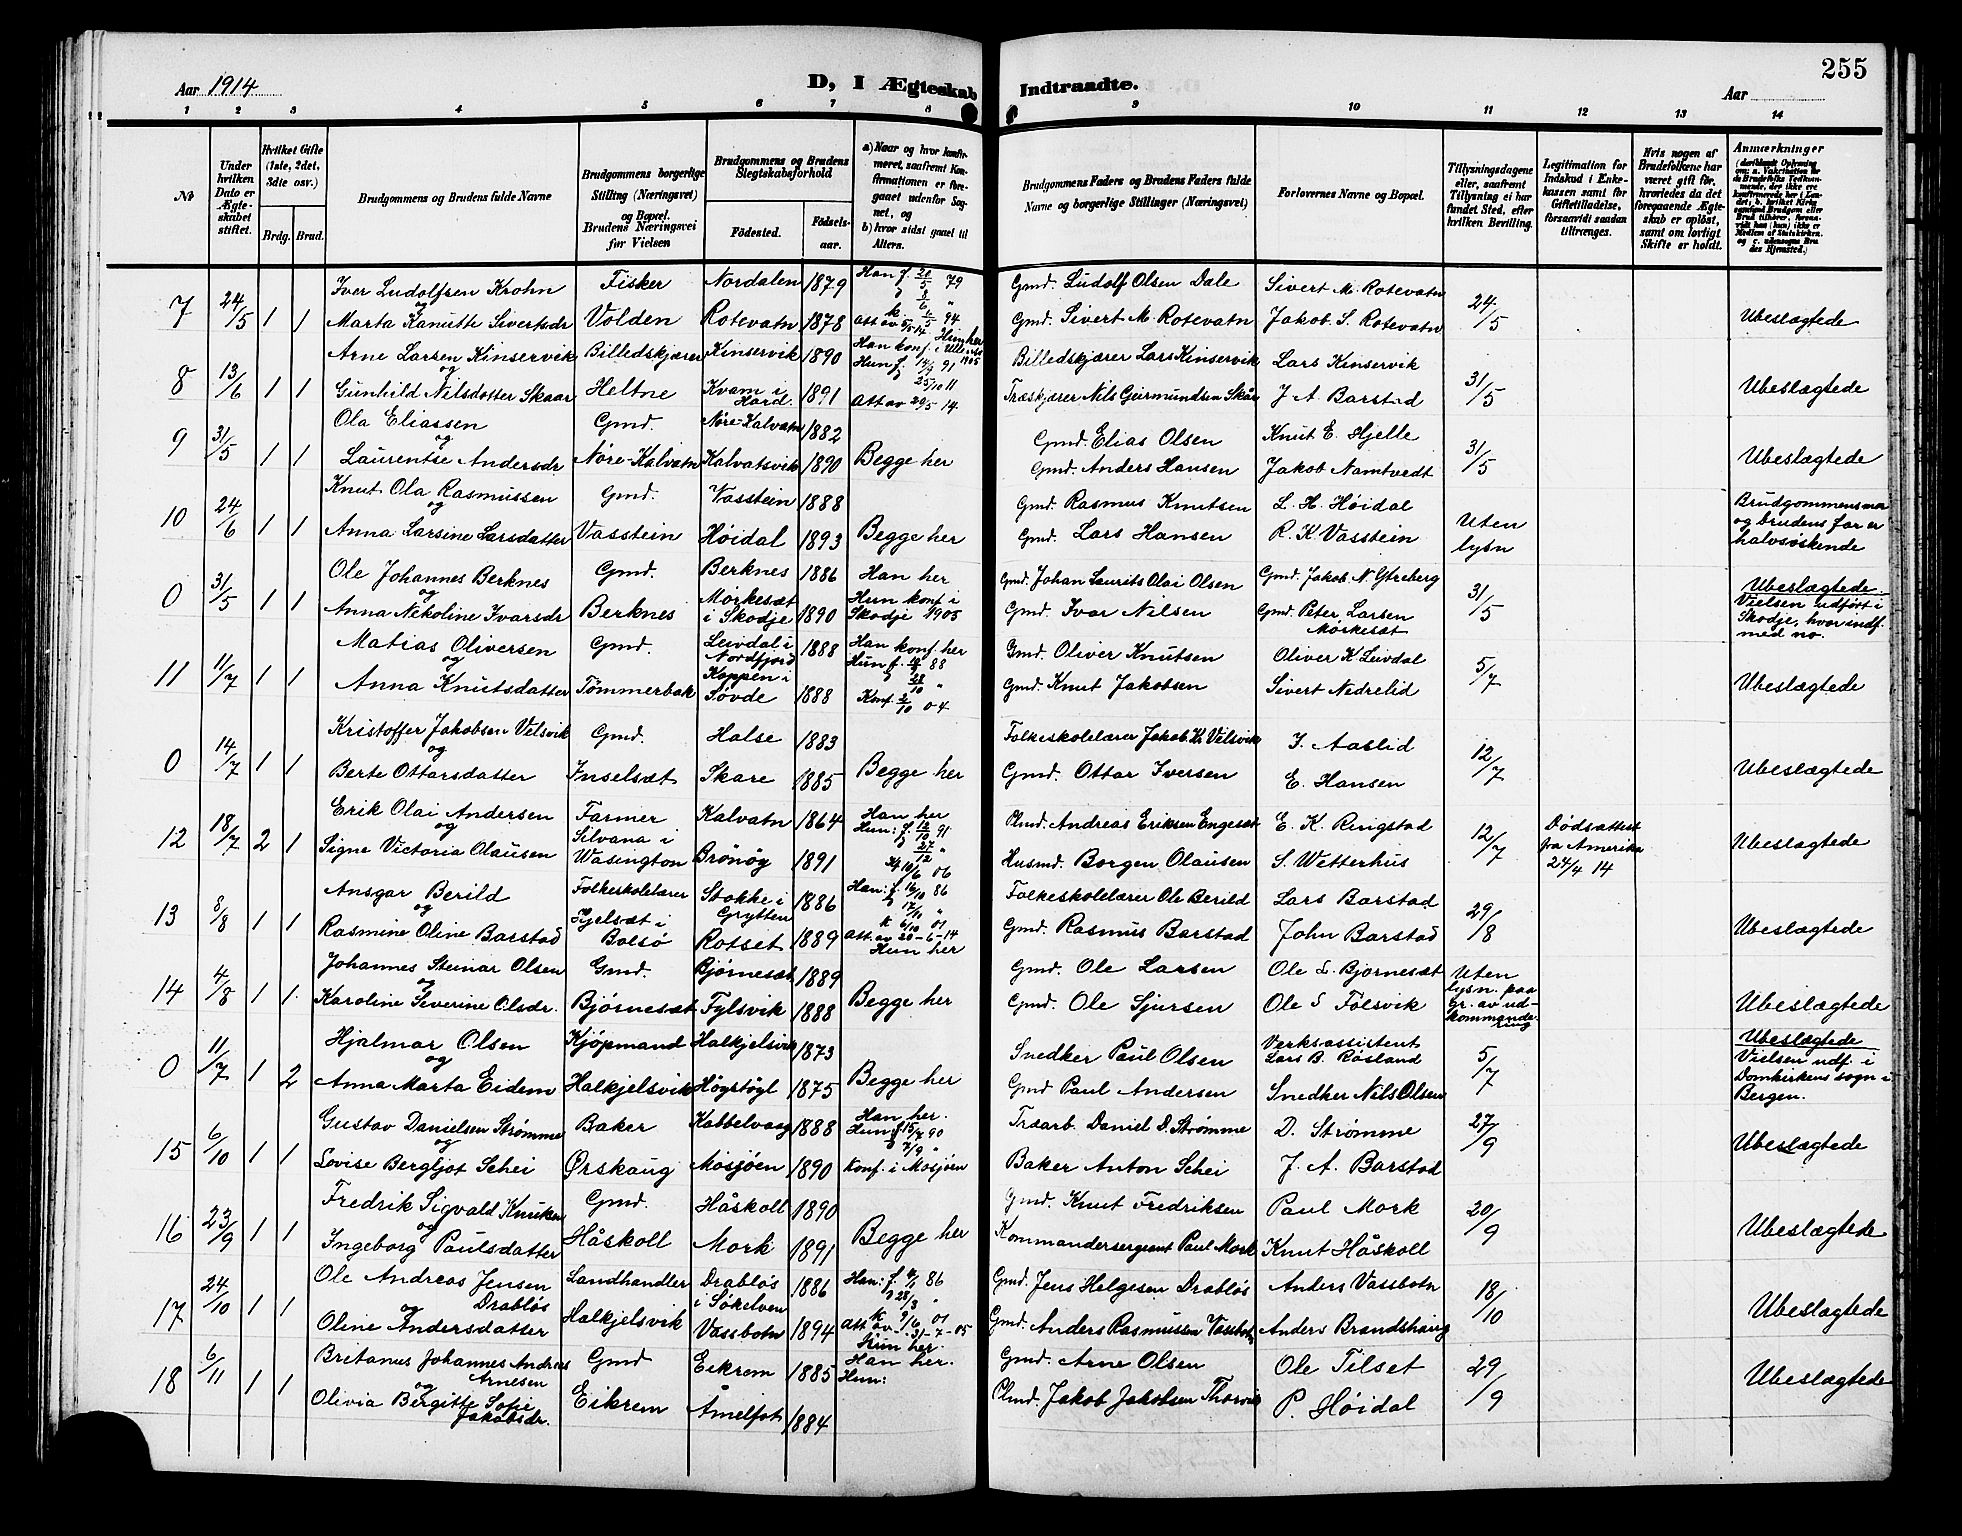 255
Aar 1914
D, I Ægteskab Indtraadte.
Aar
1 2 3 4 5 6 7 8 9 10 11 12 13 14
No
Under hvilken Dato er Ægteskabet stiftet.
Hvilket Gifte (1ste, 2det, 3die osv.)
Brdg. Brud.
Brudgommens og Brudens fulde Navne
Brudgommens borgerlige Stilling (Næringsvei) og Bopæl. Brudens Næringsvei før Vielsen
Brudgommens og Brudens Slegtskabsforhold
Fødested. Fødsels-aar.
a) Naar og hvor konfirmeret, saafremt Konfirmationen er foregaaet udenfor Sognet, og b) hvor sidst gaaet til Alters.
Brudgommens Faders og Brudens Faders fulde Navne og borgerlige Stillinger (Næringsvei)
Forlovernes Navne og Bopæl.
Tillysningsdagene eller, saafremt Tillysning ei har fundet Sted, efter hvilken Bevilling.
Legitimation for Indskud i Enkekassen samt for Giftetilladelse, forsaavidt saadan tiltrænges.
Hvis nogen af Brudefolkene har været gift før, hvorledes da det foregaaende Ægteskab er opløst, samt om lovligt Skifte er holdt.
Anmærkninger
7 24/5 1 1
Iver Ludolfsen Krohn Fisker Nordalen 1879 Han f. 20/5 79 Gmd. Ludolf Olsen Dale Sivert M. Rotevatn 24/5 Ubeslægtede
og
Marta Kanutte Sivertsdr Volden Rotevatn 1878 Gmd. Sivert M. Rotevatn Jakob S. Rotevatn
8 13/6 1 1
Arne Larsen Kinservik Billedskjærer Kinservik 1890 Han konf. i Billedskjærer Lars Kinservik Lars Kinservik 31/5 Ubeslægtede
og
Gunhild Nilsdotter Skaar Heltne Kvam i Hard. 1891 Att av 29/5 14. Træskjærer Nils Geirmundsen Skår J. A. Barstad
9 31/5 1 1
Ola Eliassen Gmd. Nøre-Kalvatn 1882 Begge her Gmd. Elias Olsen Knut E. Hjelle 31/5 Ubeslægtede
og
Laurentse Andersdr Nøre-Kalvatn Kalvatsvik 1890 Gmd. Anders Hansen Jakob Namtvedt
10 24/6 1 1
Knut Ola Rasmussen Gmd. Vasstein 1888 Begge her Gmd. Rasmus Knutsen L. H. Høidal Uten lysn Brudgommens mor og brudens far er halvsøskende
og
Anna Larsine Larsdatter Vasstein Høidal 1893 Gmd. Lars Hansen R. K. Vasstein
0 31/5 1 1
Ole Johannes Berknes Gmd. Berknes 1886 Han her Gmd. Johan Laurits Olai Olsen Gmd. Jakob N. Ytreberg 31/5 Ubeslægtede. Vielsen udført i Skodje, hvor indf. med no.
og
Anna Nikoline Ivarsdr Berknes Morkesæt i Skodje 1890 Hun konf. i Skodje 1905 Gmd. Ivar Nilsen Gmd. Peter Larsen Morkesæt
11 11/7 1 1
Matias Oliversen Gmd. Leivdal i Nordfjord 1888 Han konf. her Gmd. Oliver Knutsen Oliver K. Leivdal 5/7 Ubeslægtede
og
Anna Knutsdatter Tømmerbak Koppen i Søvde 1888 Konf. 2/10 04 Gmd. Knut Jakobsen Sivert Nedrelid
0 14/7 1 1
Kristoffer Jakobsen Velsvik Gmd. Halse 1883 Begge her Folkeskolelærer Jakob K. Velsvik J. Aaslid 12/7 Ubeslægtede
og
Berte Ottarsdatter Inselsæt Skare 1885 Gmd. Ottar Iversen E. Hansen
12 18/7 2 1
Erik Olai Andersen Farmer Kalvatn 1864 Han her Andreas Eriksen Engesæt E. K. Ringstad 12/7 Dødsattest fra Amerika 24/4 14 Ubeslægtede
og
Signe Victoria Olausen Silvana i Wasington Brønøy 1891 Husmd. Borgen Olausen S. Wetterhus
13 8/8 1 1
Ansgar Berild Folkeskolelærer Stokke i Grytten 1886 Han: f. 16/10 86 Folkeskolelærer Ole Berild Lars Barstad 29/8 Ubeslægtede
og
Rasmine Oline Barstad Hjelsæt i Bolsø Rotset 1889 Att. av 20-6-14 Hun her Gmd. Rasmus Barstad John Barstad
14 4/8 1 1.
Johannes Steinar Olsen Gmd. Bjørnesæt 1889 Begge her Gmd. Ole Larsen Ole L. Bjørnesæt Uten lysn. paa gr. av udkommandering Ubeslægtede
og
Karoline Severine Olsdr. Bjørnesæt Fylsvik 1888 Gmd. Ole Sjursen Ole S Følsvik
0 11/7 1 2
Hjalmar Olsen Kjøpmand Halkjelsvik 1873 Begge her Snedker Paul Olsen Verksassistent Lars B. Røsland 5/7 Ubeslægtede Vielsen udf. i Domkirkens sogn i Bergen.
og
Anna Marta Eidem Halkjelsvik Høgstøyl 1875 Gmd Paul Andersen Snedker Nils Olsen
15 6/10 1 1
Gustav Danielsen Strømme Baker Kabbelvaag 1888 Han her. Træarb. Daniel D. Strømme D. Strømme 27/9 Ubeslægtede
og
Lovise Bergljot Schei Ørskaug Mosjøen 1890 Konf. i Mosjøen Baker Anton Schei J. A. Barstad
16 23/9 1 1
Fredrik Sigvald Knutsen Gmd. Håskoll 1890 Begge her Gmd. Knut Fredriksen Paul Mork 20/9 Ubeslægtede
og
Ingeborg Paulsdatter Håskoll Mork 1891 Kommandersergeant Paul Mork Knut Håskoll
17 24/10 1 1
Ole Andreas Jensen Drabløs Landhandler Drabløs i Søkelven 1886 Gmd. Jens Helgesen Drabløs Anders Vassbotn 18/10 Ubeslægtede
og
Oline Andersdatter Halkjelsvik Vassbotn 1894 Att av 31-7-05 Hun her. Gmd. Anders Rasmussen Vassbotn Anders Brandshaug
18 6/11 1 1
Britanus Johannes Andreas Arnesen Gmd Eikrem 1885 Han her. Gmd. Arne Olsen Ole Tilset 29/9 Ubeslægtede
og
Olivia Birgitte Sofie Jakobsdr. Eikrem Åmelfot 1884 Hun: Jakob Jakobsen P. Høidal